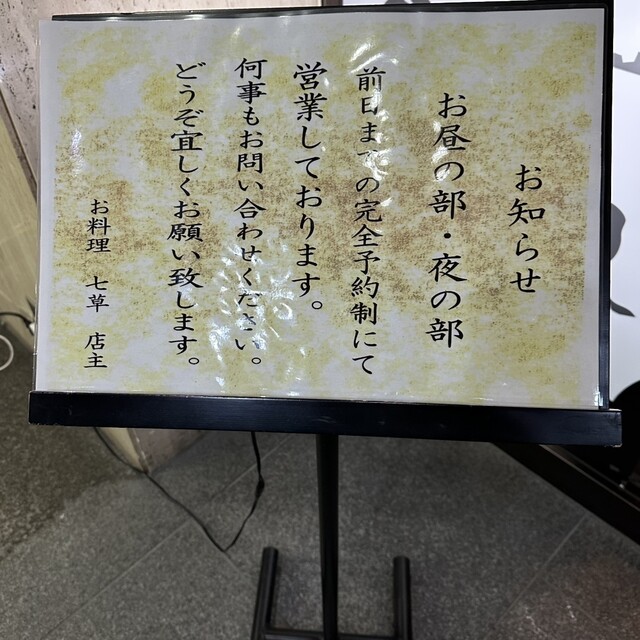 お知らせ
お昼の部・夜の部
前日までの完全予約制にて
営業しております。
何事もお問い合わせください。
どうぞ宜しくお願い致します。
お料理 七草 店主